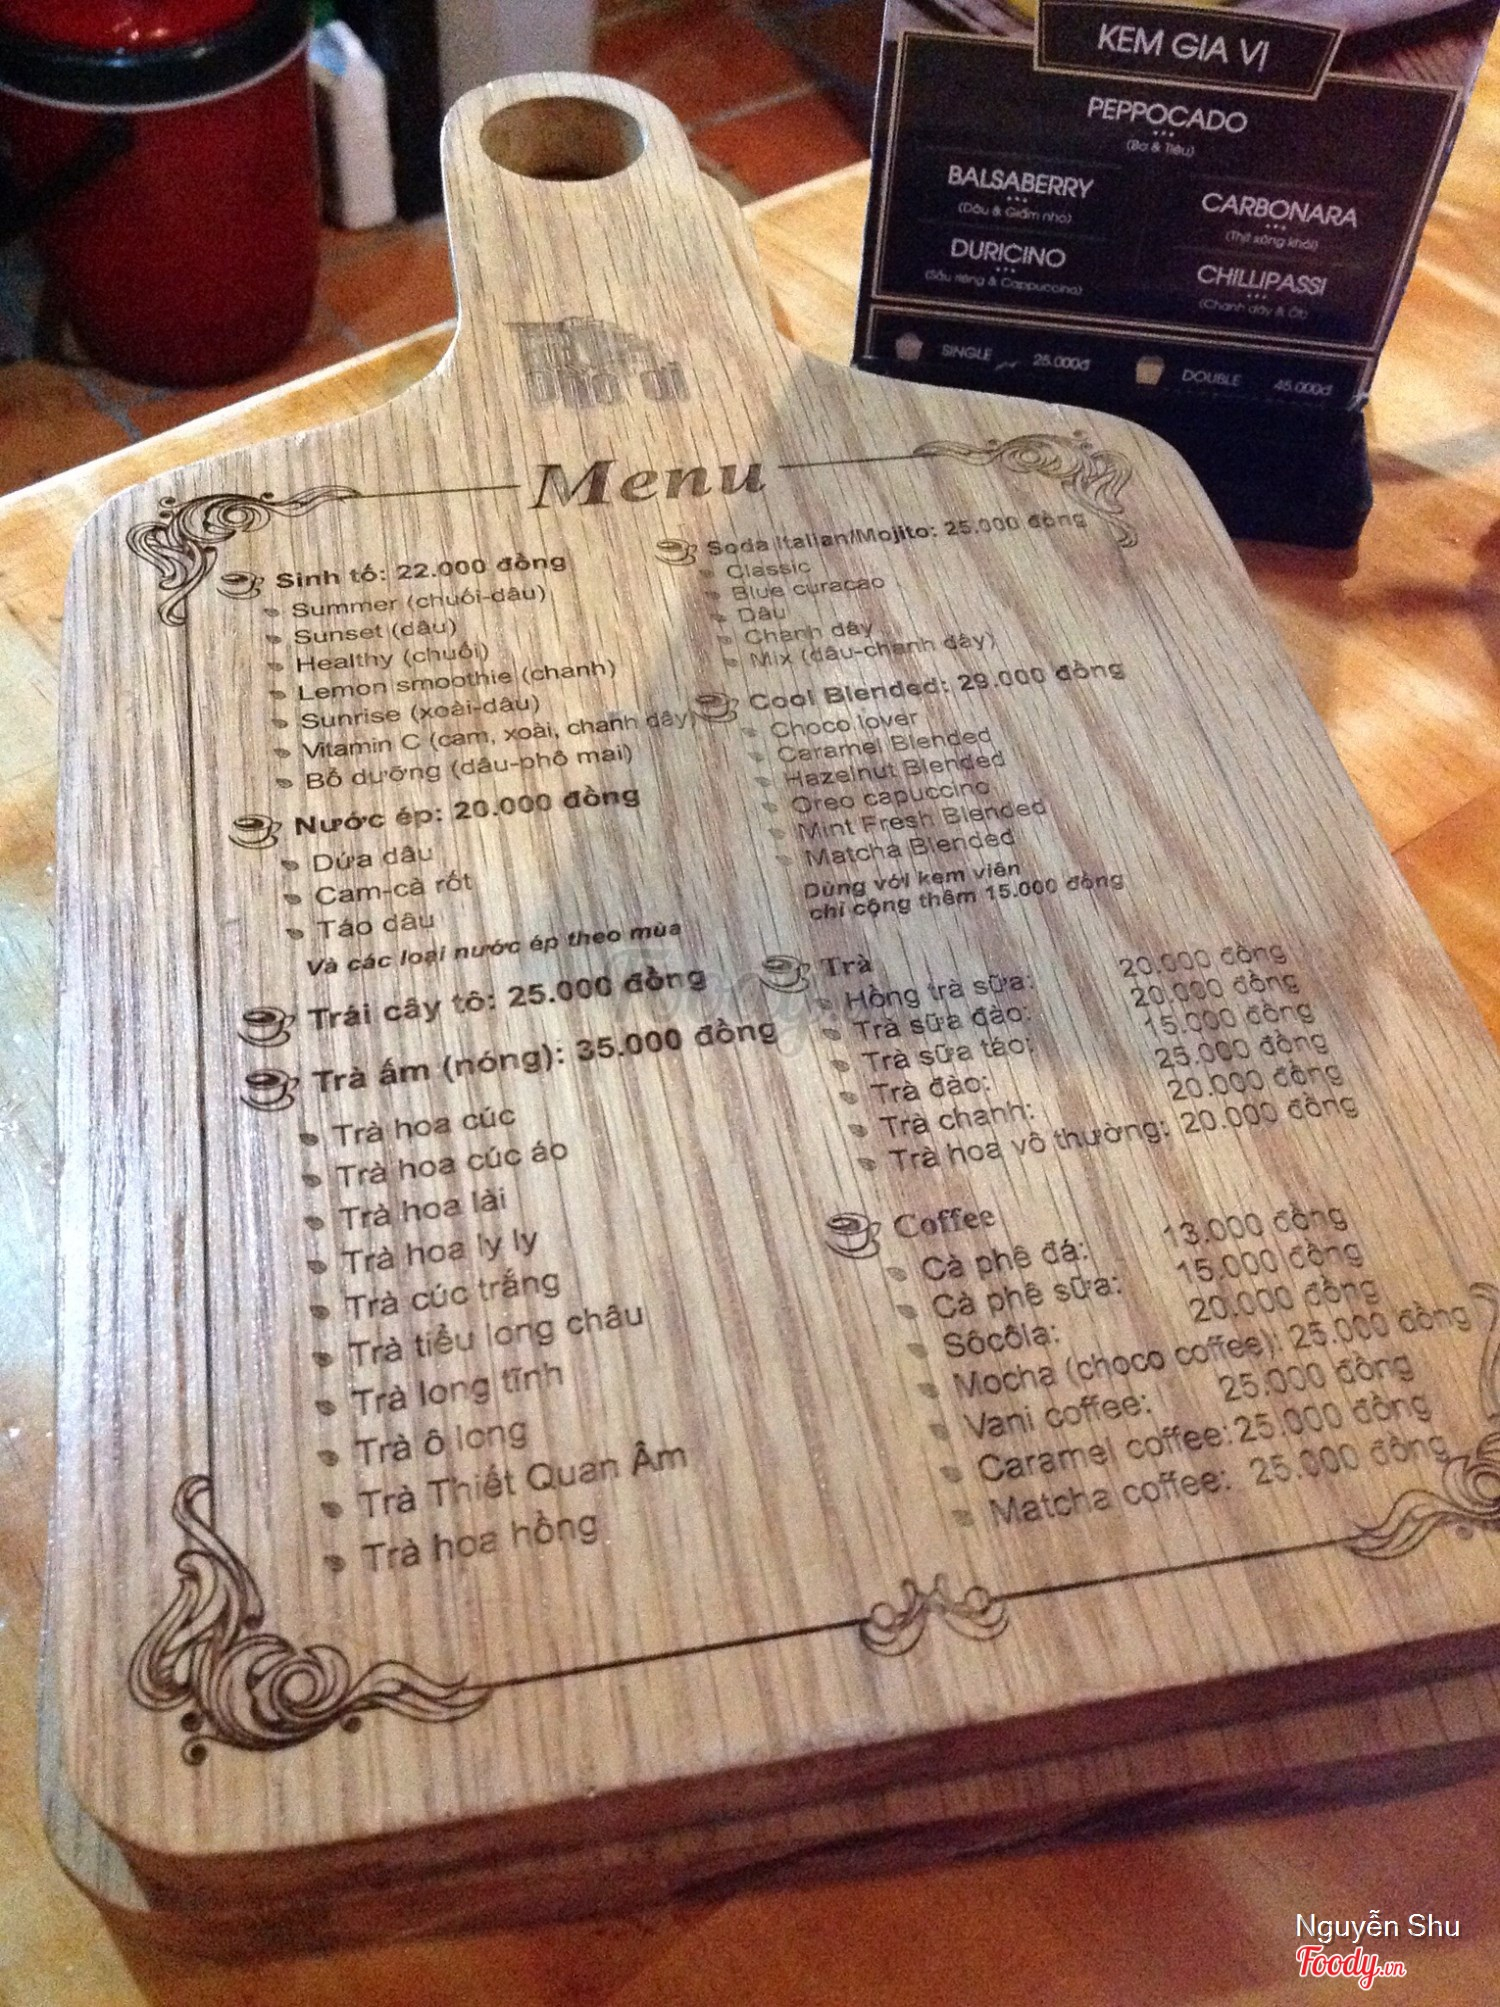 KEM GIA VỊ
PEPPOCADO
(Bơ & Tiêu)
BALSABERRY
(Dâu & Giấm nho)
CARBONARA
(Thịt xông khói)
DURICINO
(Sầu riêng & Cappuccino)
CHILLIPASSI
(Chanh dây & Ớt)
SINGLE 25.000đ
DOUBLE 45.000đ
Menu
Sinh tố: 22.000 đồng
Summer (chuối-dâu)
Sunset (dâu)
Healthy (chuối)
Lemon smoothie (chanh)
Sunrise (xoài-dâu)
Vitamin C (cam, xoài, chanh dây)
Bổ dưỡng (dâu-phô mai)
Nước ép: 20.000 đồng
Dứa dâu
Cam-cà rốt
Táo dâu
Và các loại nước ép theo mùa
Trái cây tô: 25.000 đồng
Trà ấm (nóng): 35.000 đồng
Trà hoa cúc
Trà hoa cúc áo
Trà hoa lài
Trà hoa ly ly
Trà cúc trắng
Trà tiểu long châu
Trà long tĩnh
Trà ô long
Trà Thiết Quan Âm
Trà hoa hồng
Soda Italian/Mojito: 25.000 đồng
Classic
Blue curacao
Dâu
Chanh dây
Mix (dâu-chanh dây)
Cool Blended: 29.000 đồng
Choco lover
Caramel Blended
Hazelnut Blended
Oreo capuccino
Mint Fresh Blended
Matcha Blended
Dùng với kem viên
chỉ cộng thêm 15.000 đồng
Trà
Hồng trà sữa: 20.000 đồng
Trà sữa đào: 20.000 đồng
Trà sữa táo: 15.000 đồng
Trà đào: 25.000 đồng
Trà chanh: 20.000 đồng
Trà hoa vô thường: 20.000 đồng
Coffee
Cà phê đá: 13.000 đồng
Cà phê sữa: 15.000 đồng
Sôcôla: 20.000 đồng
Mocha (choco coffee): 25.000 đồng
Vani coffee: 25.000 đồng
Caramel coffee: 25.000 đồng
Matcha coffee: 25.000 đồng
Nguyễn Shu
Foody.vn